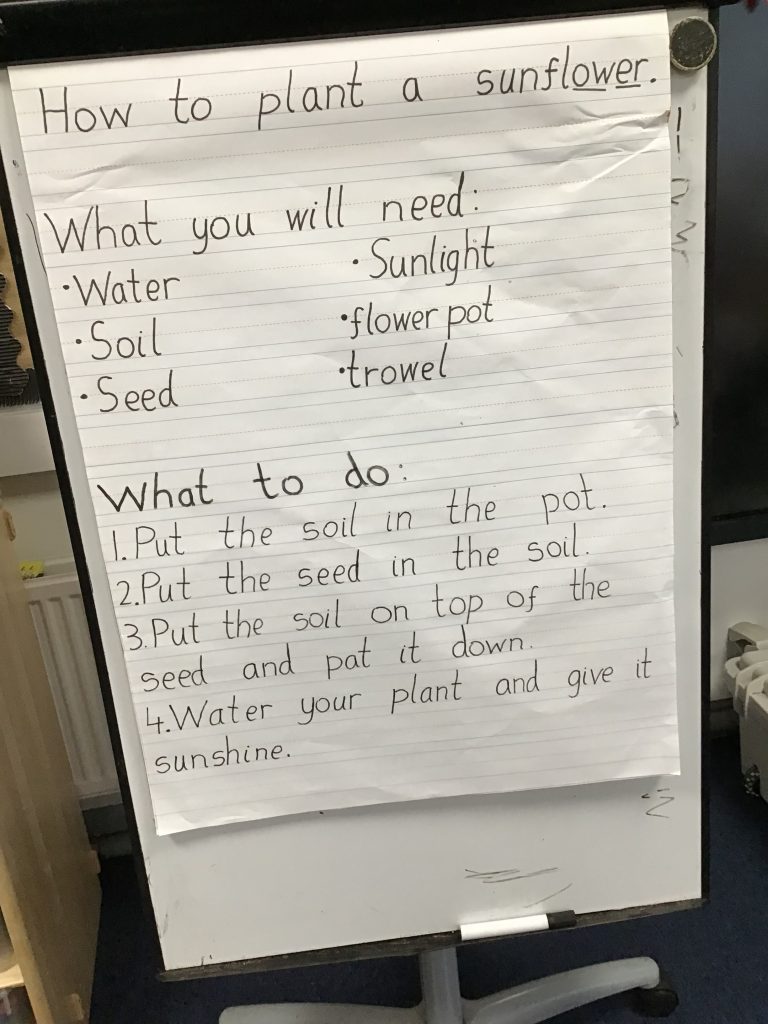 How to plant a sunflower.
What you will need:
·Water
·Soil
·Seed
·Sunlight
·flower pot
·trowel
What to do:
1.Put the soil in the pot.
2.Put the seed in the soil.
3.Put the soil on top of the
seed and pat it down.
4.Water your plant and give it
sunshine.